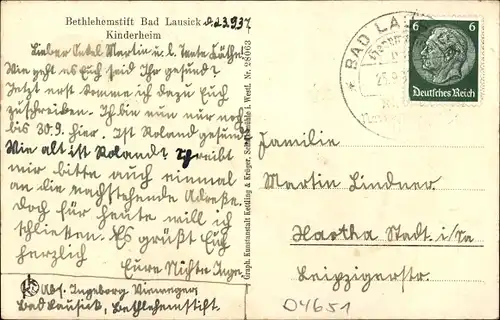 Bethlehemstift Bad Lausick d. 23.9.37
Kinderheim
Lieber Onkel Martin u. l. Tante Käthe!
Wie geht es Euch seid Ihr gesund?
Jetzt erst komme ich dazu Euch
zuschreiben. Ich bin nun nur noch
bis 30.9. hier. Ist Roland gesund
Wie alt ist Roland? Schreibt
mir bitte auch einmal
an die nachstehende Adresse.
Doch für heute will ich
schließen. Es grüßt Euch
herzlich
Eure Nichte Inge.
Abs. Ingeborg Vieweger
Bad Lausick, Bethlehemstift.
Graph. Kunstanstalt Kettling & Krüger, Schalksmühle i. Westf. Nr. 28063
BAD LAU
6 6
Deutsches Reich
Familie
Martin Lindner
Hartha Stadt i/Sa
Leipzigerstr.
04651